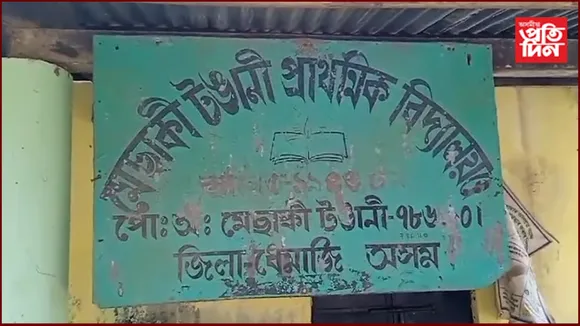 অসমীয়া
প্রতিদিন
মেচাকী টঙানী প্ৰাথমিক বিদ্যালয়
পো:অ: মেচাকী টঙানী-৭৮৬
জিলা-ধেমাজি অসম